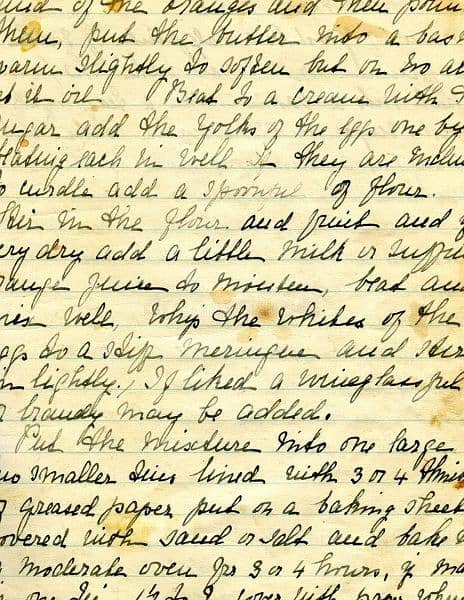 rind of the oranges and then pour
them, put the butter into a bas
warm slightly to soften but on no ac
et it oil Beat to a cream with
sugar add the yolks of the eggs one by
beating each in well If they are
to curdle add a spoonful of flour.
Stir in the flour and fruit and
very dry add a little milk or
orange juice to moisten, beat an
mix well, Whip the whites of the
eggs to a stiff meringue and stir
in lightly, If liked a wineglassful
brandy may be added.
Put the mixture into one large
two smaller tins lined with 3 or 4 thick
of greased paper put on a baking sheet
covered with sand or salt and bake
moderate oven for 3 or 4 hours, if ma
in one tin cover with